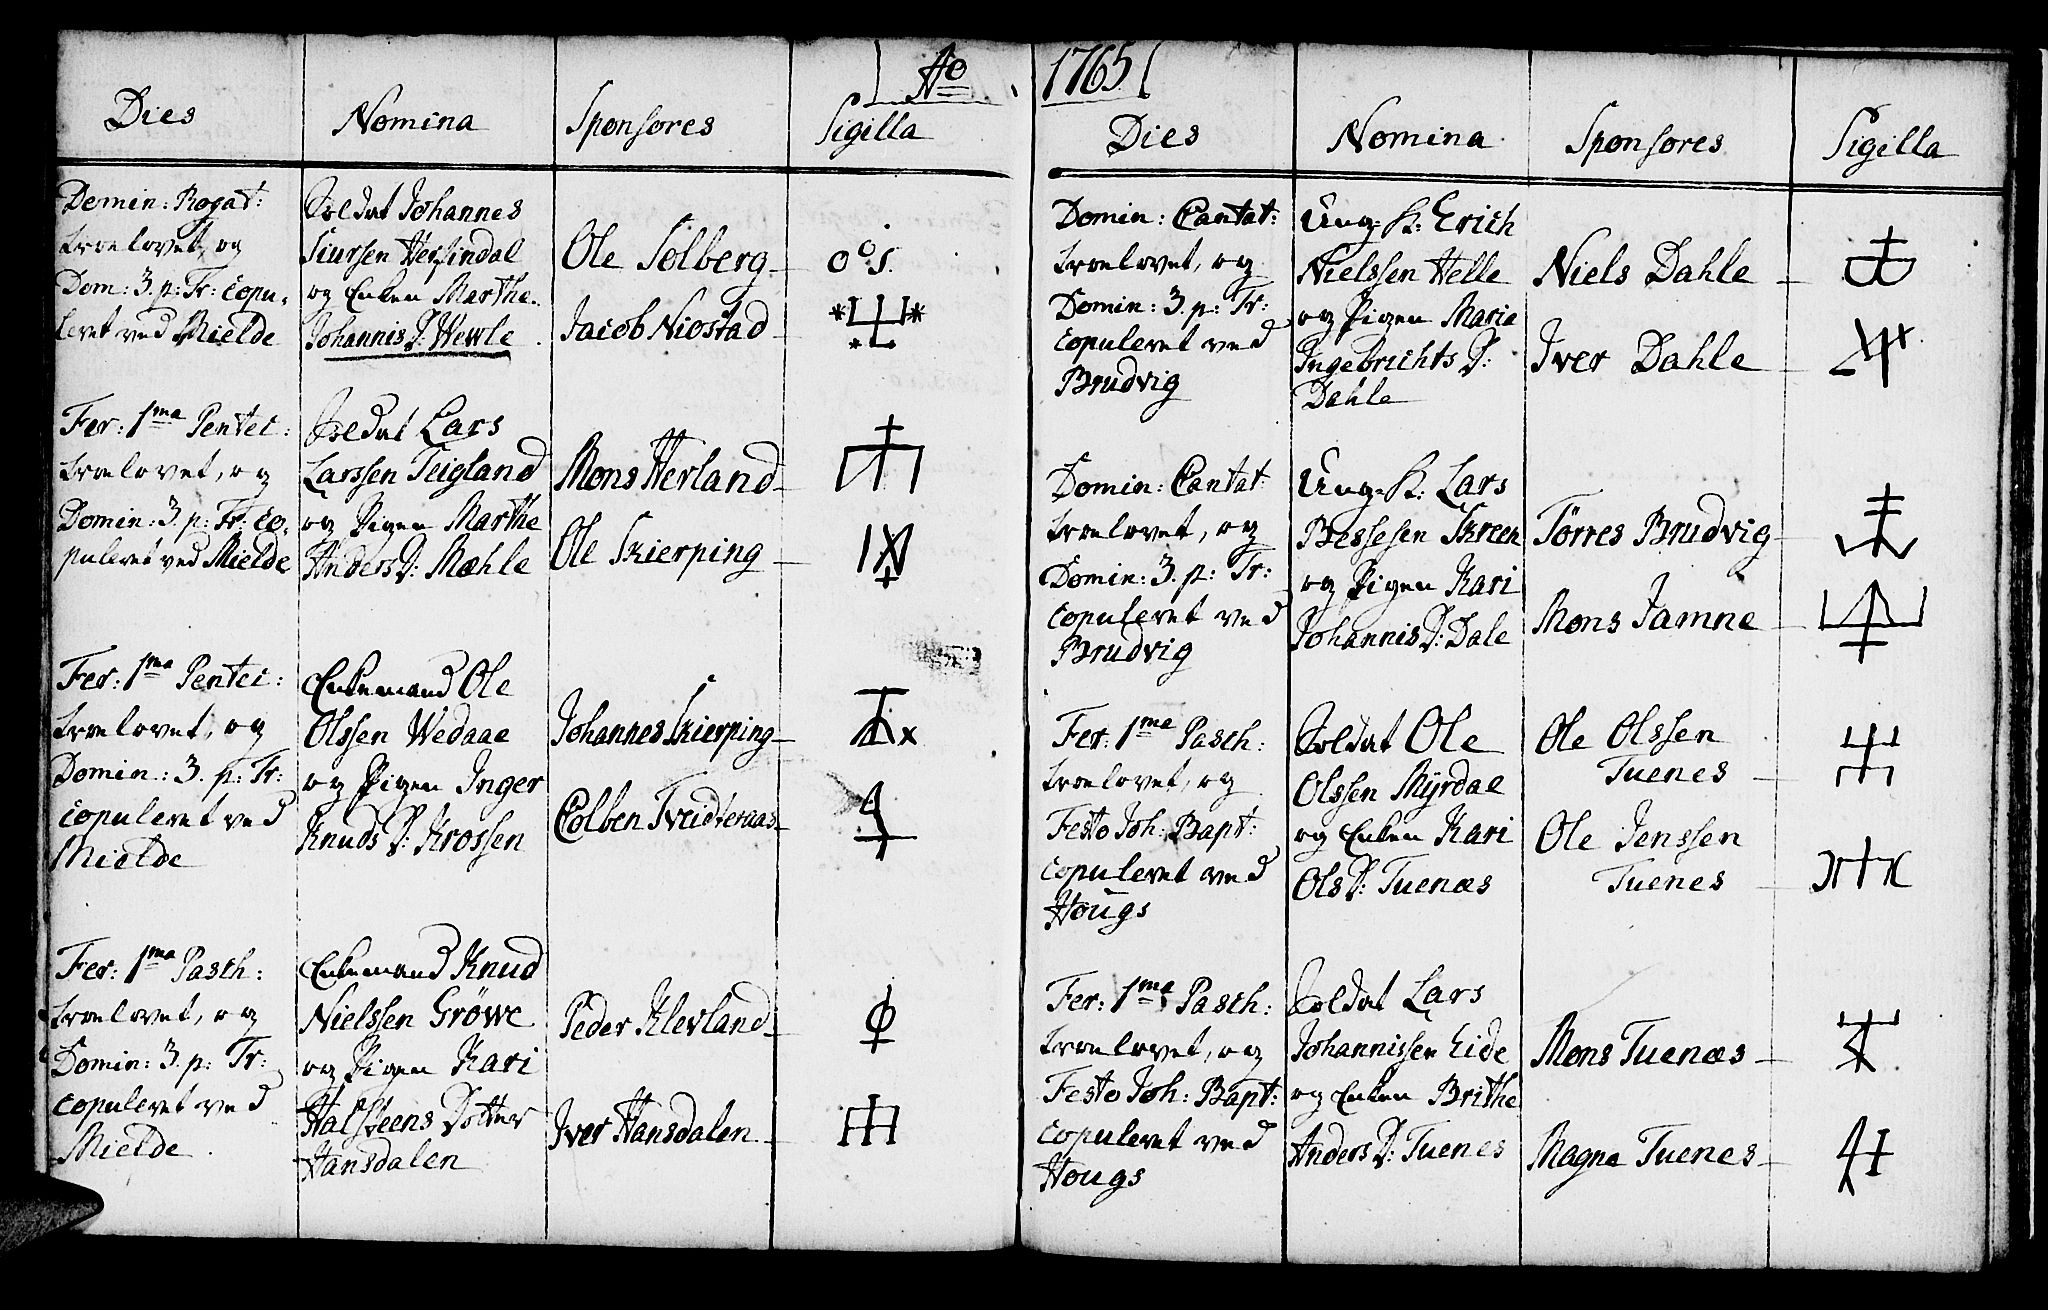 Ao 1765
Dies
Nomina
Sponsores
Sigilla
Domin: Rogat:
troelovet, og
Dom: 3. p: Tr: copu-
leret ved Mielde
Soldat Johannes
Siursen Hersindal
og Enken Marthe
Johannis D: Wewle
Ole Solberg
Jacob Niostad
O S.
Fer: 1ma Pentec:
troelovet, og
Domin: 3. p: Tr: co-
puleret ved Mielde
Soldat Lars
Larssen Teigland
og Pigen Marthe
Anders D: Mæhle
Mons Herland
Ole Skierping
Fer: 1ma Pentec:
troelovet, og
Domin: 3. p: Tr:
copuleret ved
Mielde
Enkemand Ole
Olssen Wedaae
og Pigen Inger
Knuds D: Krossen
Johannes Skierping
Colben Tveidteraas
Fer: 1ma Pasch:
troelovet, og
Domin: 3. p: Tr:
copuleret ved
Mielde
Enkemand Knud
Nielssen Gröwe
og Pigen Kari
Halsteens Dotter
Hansdalen
Peder Klevland
Iver Hansdalen
Dies
Nomina
Sponsores
Sigilla
Domin: Cantat:
troelovet, og
Domin: 3. p: Tr:
copuleret ved
Brudvig
Ung-K: Erich
Nielssen Helle
og Pigen Marie
Ingebrichts D:
Dahle
Niels Dahle
Iver Dahle
Domin: Cantat:
troelovet, og
Domin: 3. p: Tr:
copuleret ved
Brudvig
Ung-K: Lars
Bessesen Skreen
og Pigen Kari
Johannis D: Dale
Törres Brudvig
Mons Jamne
Fer: 1ma Pasch:
troelovet, og
Festo Joh: Bapt:
copuleret ved
Hougs
Soldat Ole
Olssen Myrdal
og Enken Kari
Ols D: Tuenæs
Ole Olssen
Tuenes
Ole Jenssen
Tuenes
Fer: 1ma Pasch:
troelovet, og
Festo Joh: Bapt:
copuleret ved
Hougs
Soldat Lars
Johannissen Eide
og Enken Brithe
Anders D: Tuenes
Mons Tuenæs
Magne Tuenes